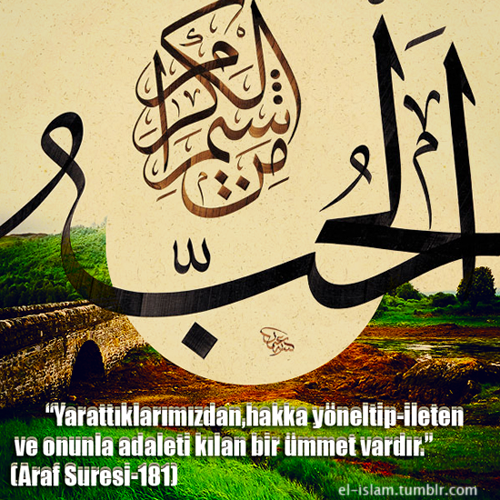 الحبّ
من شيم الكرام
“Yarattıklarımızdan,hakka yöneltip-ileten
ve onunla adaleti kılan bir ümmet vardır.”
(Araf Suresi-181)
el-islam.tumblr.com